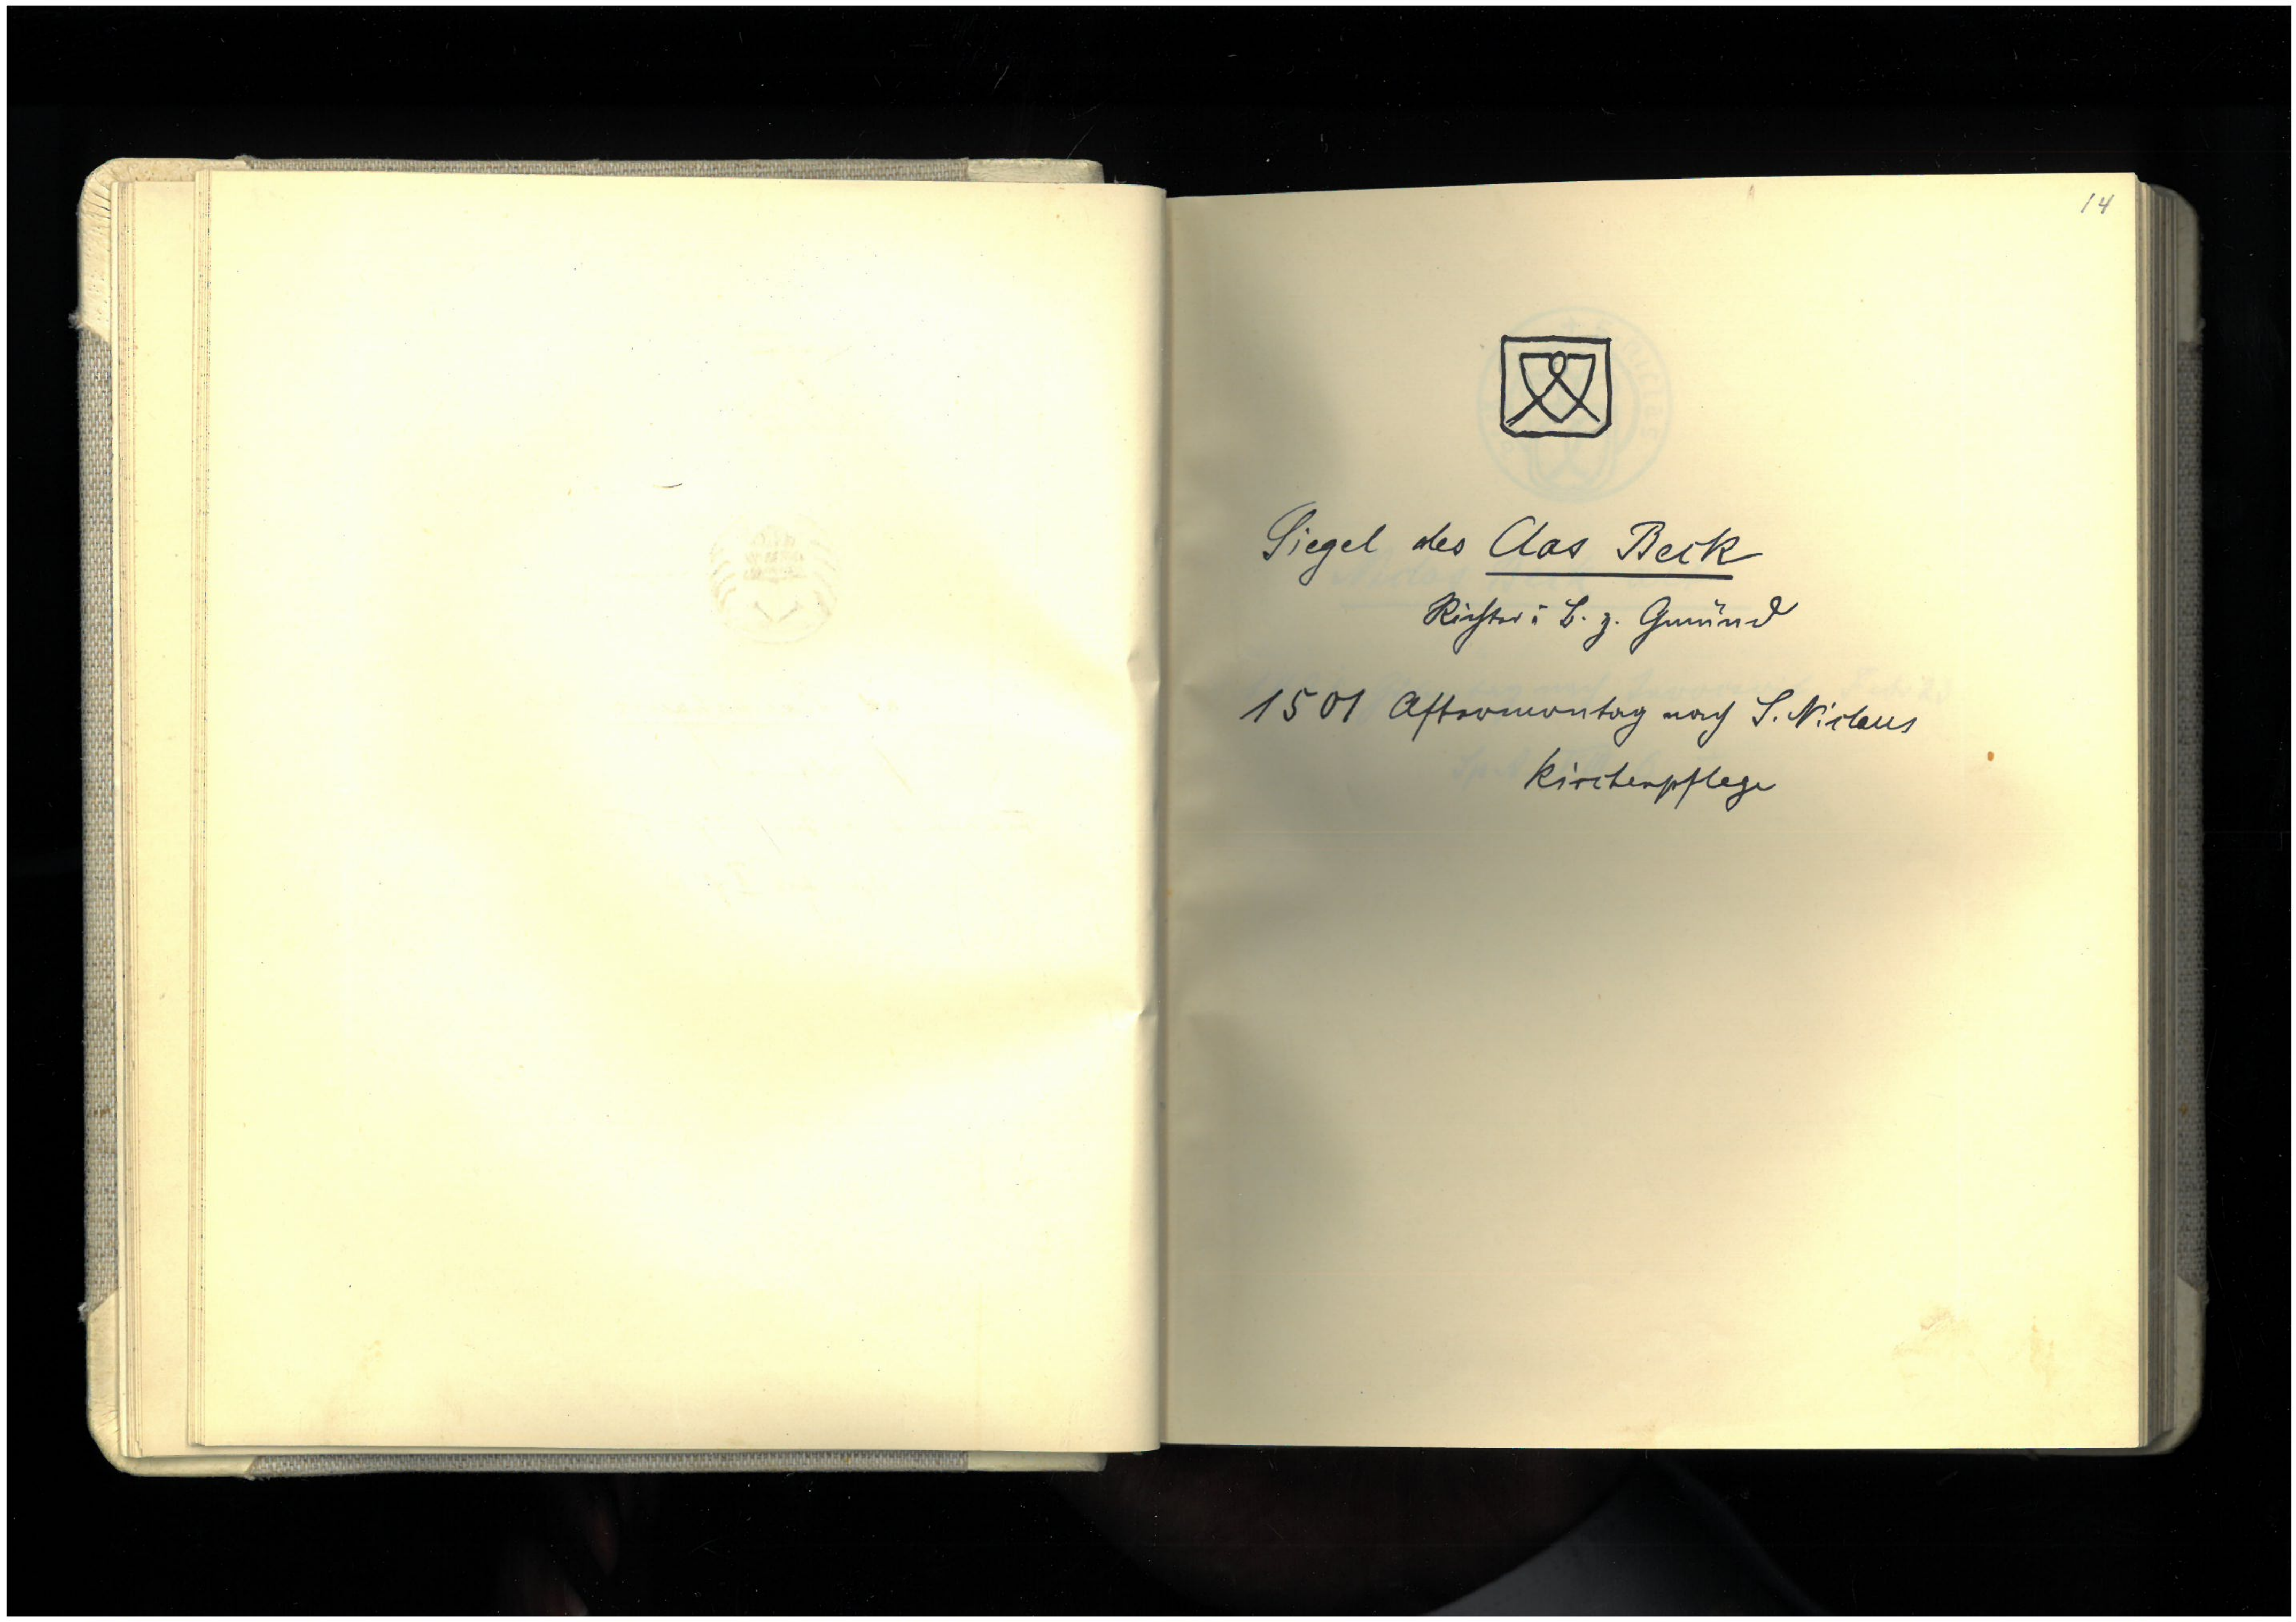 14
Siegel des Clas Beck
Richter i B. z. Gmünd
1501 Aftermontag nach S. Niclaus
Kirchenpflege